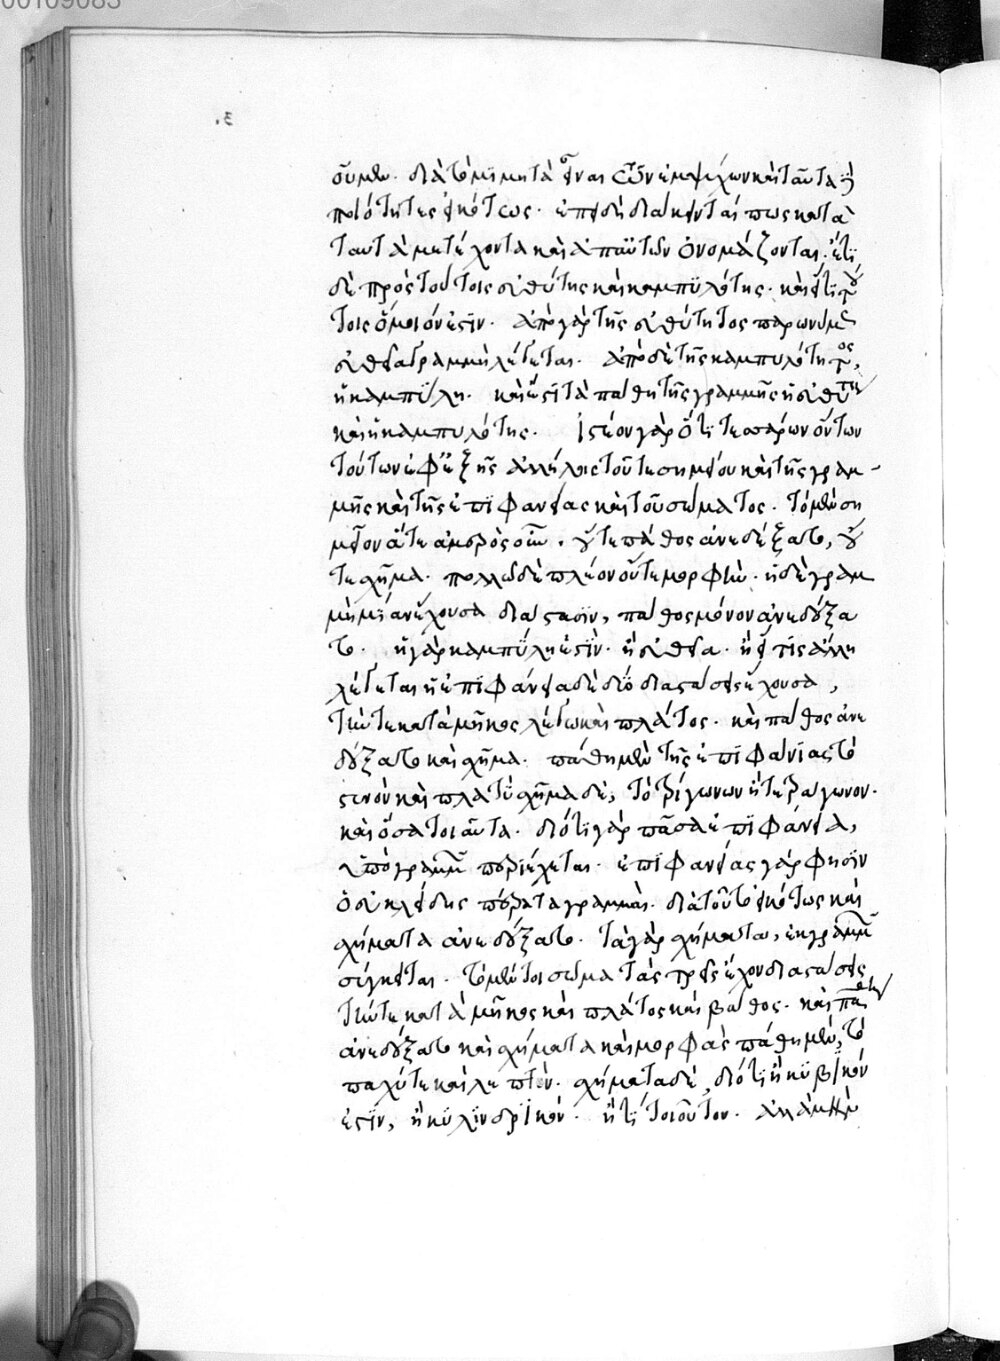 00109083
οὖμεν. διὰ τὸ μὴ μετὰ
ποιότητες εἰκότως. ἐπειδὴ διάκεινταί πως κατὰ
ταυτὰ μετέχοντα καὶ ἀπ' αὐτῶν ὀνομάζονται. ἔτι
δὲ πρὸς τούτοις εὐθύτης καὶ καμπυλότης. καὶ εἴ τι
τοῖς ὅμοιόν ἐστιν. ἀπὸ γὰρ τῆς εὐθύτητος παρωνύμως
εὐθεῖα γραμμὴ λέγεται. ἀπὸ δὲ τῆς καμπυλότητος,
ἡ καμπύλη. καὶ ἔστι τὰ πάθη τῆς γραμμῆς ἡ εὐθύτης
καὶ ἡ καμπυλότης. ἰστέον γὰρ ὅτι τεσσάρων ὄντων
τούτων ἐφεξῆς ἀλλήλοις τοῦτε σημείου καὶ τῆς γραμ-
μῆς καὶ τῆς ἐπιφανείας καὶ τοῦ σώματος. τὸ μὲν ση
μεῖον ἅτε ἀμερὲς ὂν. οὔτε πάθος ἀνεδέξατο, οὔ
τε σχῆμα. πολλῶ δὲ πλέον οὔτε μορφήν. ἡ δὲ γραμ
μὴ μίαν ἔχουσα διάστασιν, πάθος μόνον ἀνεδέξα
το. ἢ γὰρ καμπύλη ἐστὶν. ἢ εὐθεῖα. ἢ εἴ τις ἄλλη
λέγεται ἡ ἐπιφάνεια δὲ δύο διαστάσεις ἔχουσα,
τήν τε κατὰ μῆκος λέγω καὶ πλάτος. καὶ πάθος ἀνε
δέξατο καὶ σχῆμα. πάθη μὲν τῆς ἐπιφανείας τὸ
στενὸν καὶ πλατὺ σχῆμα δὲ, τὸ τρίγωνον ἢ τετράγωνον.
καὶ ὅσα τοιαῦτα. διότι γὰρ πᾶσα ἐπιφάνεια,
ὑπὸ γραμμῶν περιέχεται. ἐπιφανείας γάρ φησιν
ὁ εὐκλείδης πέρατα γραμμαί. διὰ τοῦτο εἰκότως καὶ
σχήματα ἀνεδέξατο. τὰ γὰρ σχήματα, ἐκ γραμμῶν
σύγκειται. τὸ μέντοι σῶμα τὰς τρεῖς ἔχον διαστάσεις
τήν τε κατὰ μῆκος καὶ πλάτος καὶ βάθος. καὶ πάθη
ἀνεδέξατο καὶ σχήματα καὶ μορφάς πάθη μὲν, τὸ
παχύ τε καὶ λεπτόν. σχήματα δὲ, διότι ἢ κυβικόν
ἐστιν, ἢ κυλινδρικόν. ἤ τι τοιοῦτον. ἀλλὰ μὴν